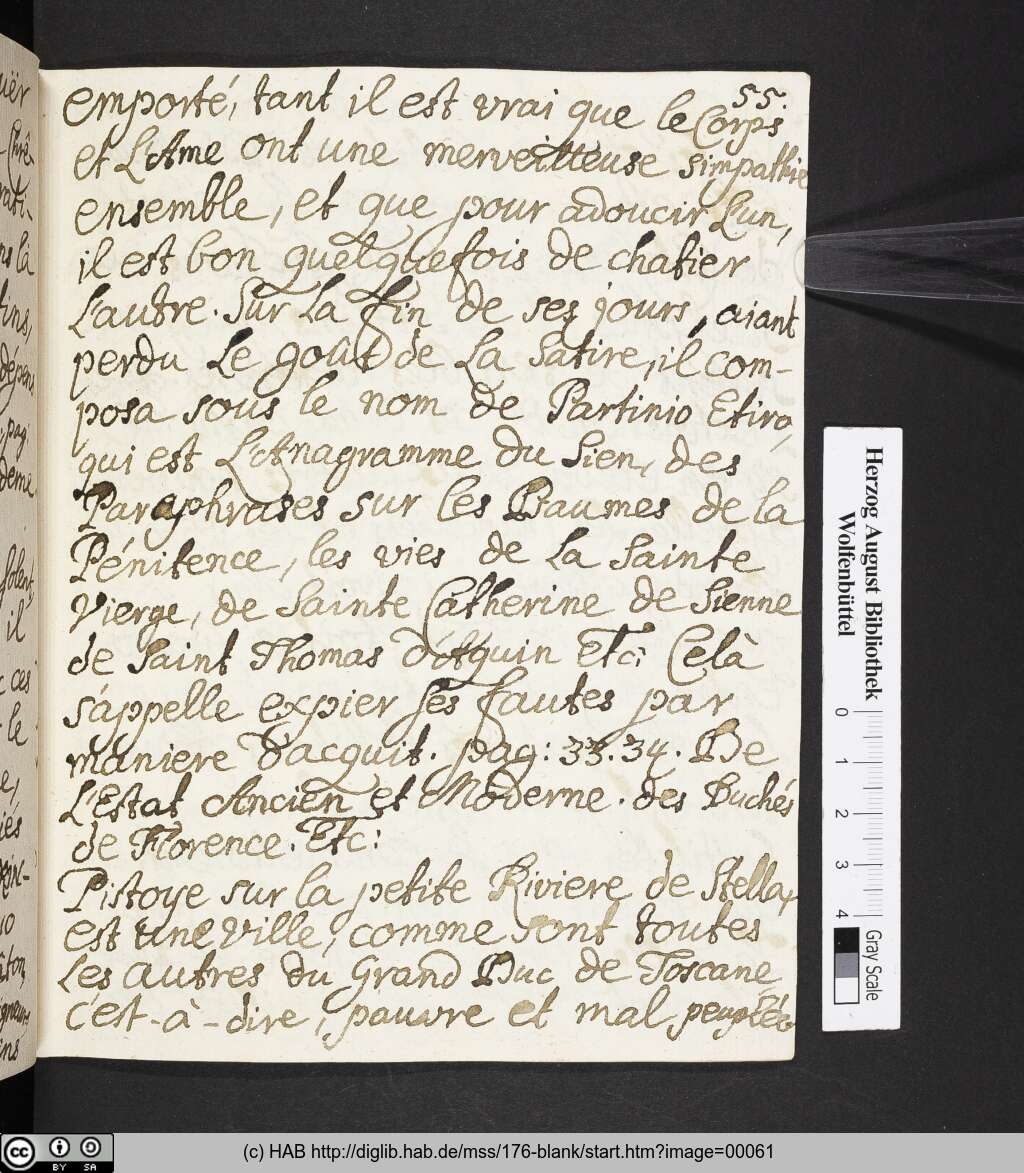 55.
emporté, tant il est vrai que le Corps
et L'Ame ont une merveilleuse simpathie
ensemble, et que pour adoucir L'un,
il est bon quelquefois de chatier
L'autre. Sur La fin de ses jours, aiant
perdu Le goût de La Satire, il com-
posa sous le nom de Partinio Etiro,
qui est L'Anagramme du Sien, des
Paraphrases sur les Psaumes de la
Pénitence, les vies de La Sainte
Vierge, de Sainte Catherine de Sienne
de Saint Thomas d'Aquin Etc: Celà
s'appelle expier ses fautes par
maniere d'acquit. pag: 33. 34. De
L'Estat Ancien et Moderne. des Duchés
de Florence. Etc:
Pistoye sur la petite Riviere de Stella,
est une ville, comme sont toutes
Les autres du Grand Duc de Toscane,
c'est-à-dire, pauvre et mal peuplée
Herzog August Bibliothek
Wolfenbüttel
0 1 2 3 4
Gray Scale
cc BY SA
(c) HAB http://diglib.hab.de/mss/176-blank/start.htm?image=00061